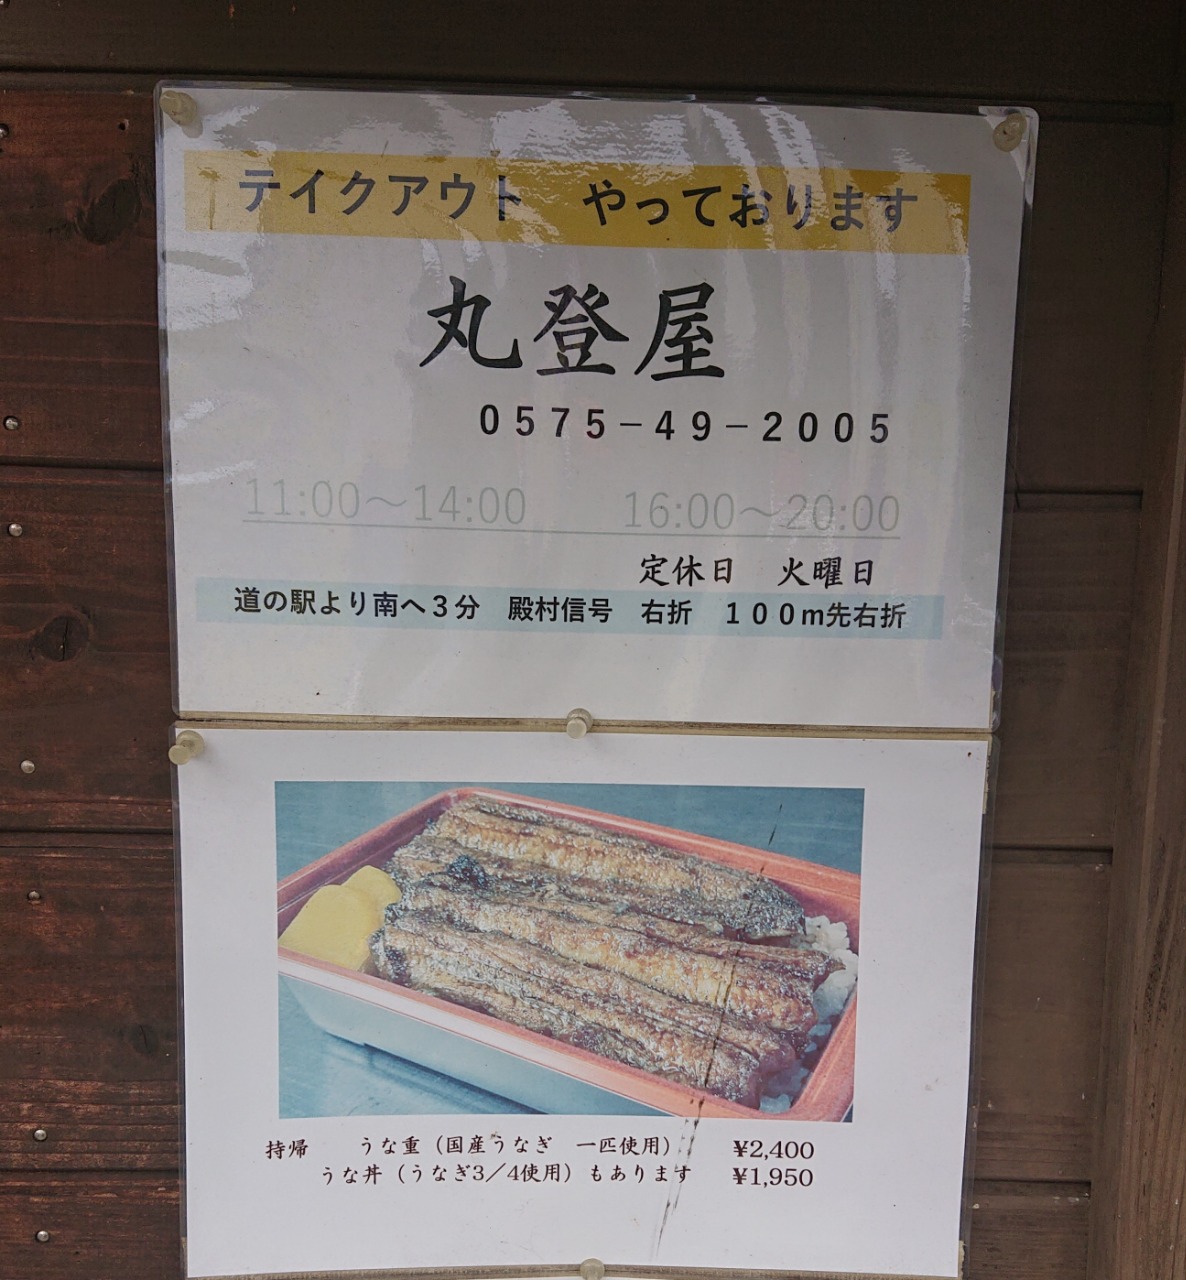 テイクアウト　やっております
丸登屋
0575-49-2005
11:00～14:00　16:00～20:00
定休日　火曜日
道の駅より南へ3分　殿村信号　右折　100m先右折
持帰　うな重（国産うなぎ　一匹使用）　¥2,400
うな丼（うなぎ3／4使用）もあります　¥1,950